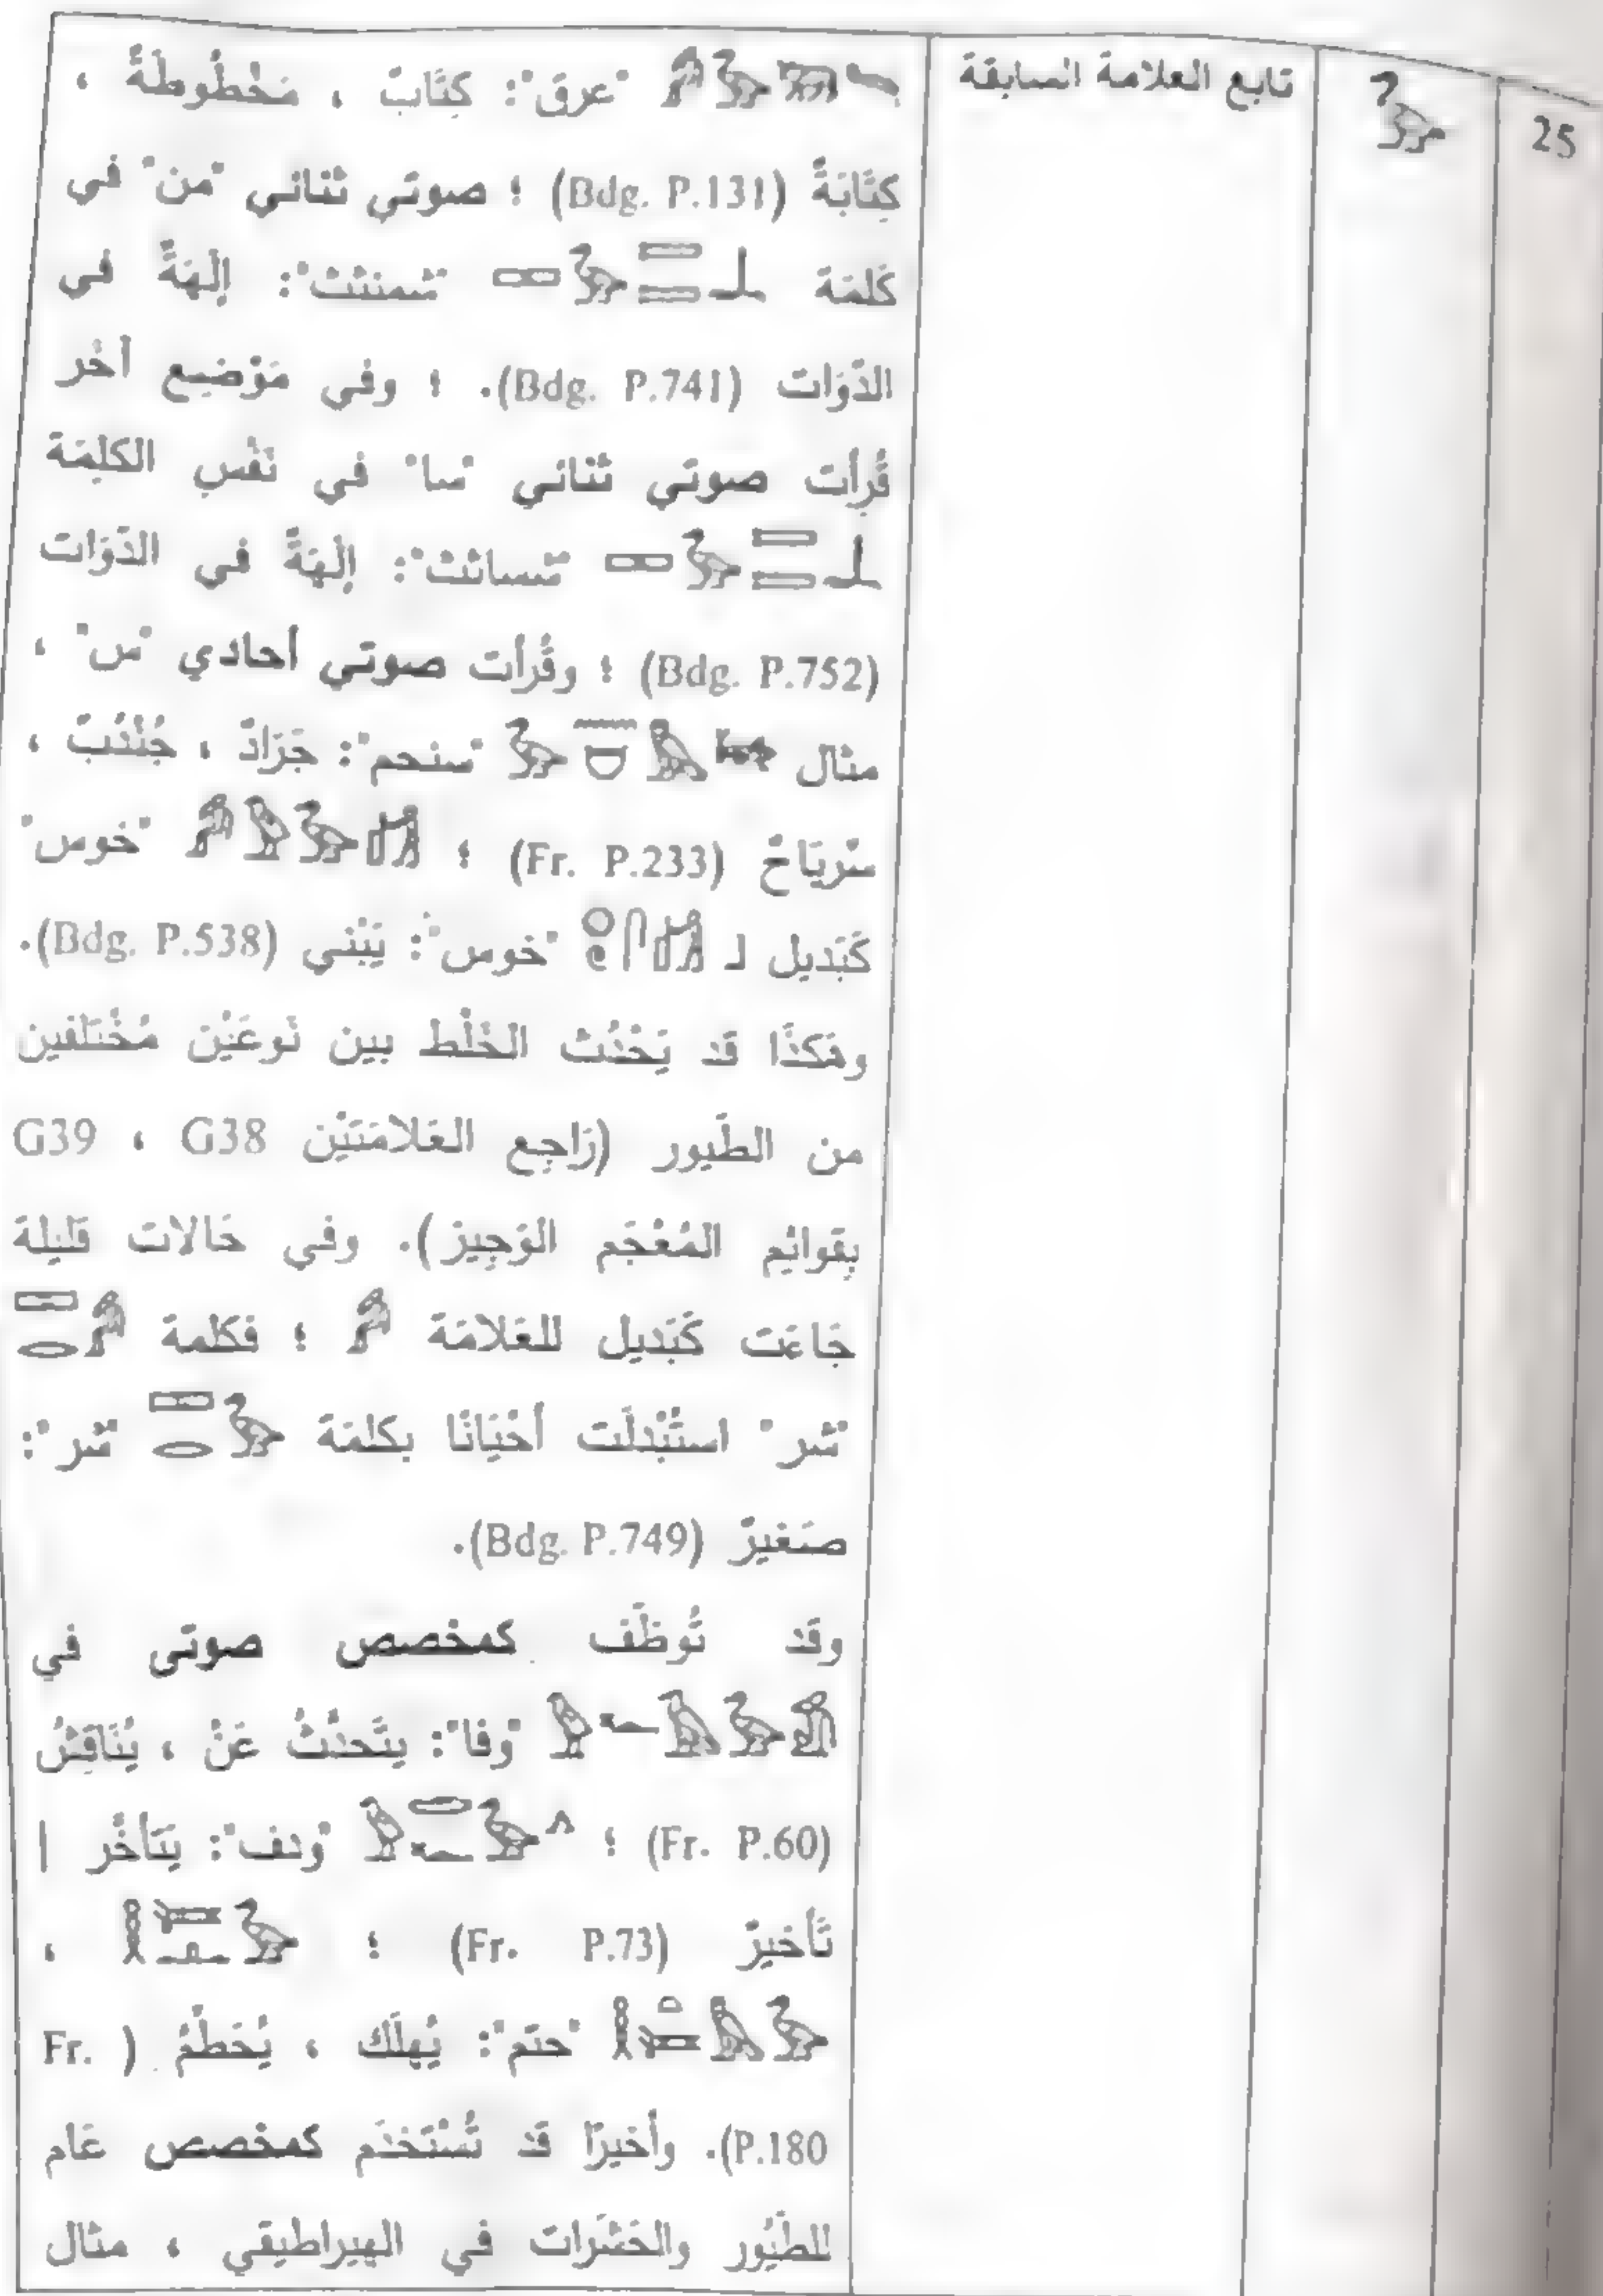 25
تابع العلامة السابقة
"عرق": كِتَابٌ ، مَخْطُوطَةٌ ،
كِتَابَةٌ (Bdg. P.131) ؛ صوتي ثنائي "من" في
كَلمَة "شمنثث": إلَهَةٌ في
الدَّوَات (Bdg. P.741). ؛ وفي مَوْضِع أخر
قُرِأت صوتي ثنائي "سا" في نَفْسِ الكَلِمَة
"شساثث": إلَهَةٌ في الدَّوَات
(Bdg. P.752) ؛ وقُرِأت صوتي أحادي "س" ،
مثال "سنحم": جَرَادٌ ، جُنْدُبٌ ،
سُريَاحٌ (Fr. P.233) ؛ "خوس"
كَبَديل لـ "خوس": يَبْني (Bdg. P.538).
وهَكذَا قَد يَحْدُث الخَلْط بين نَوعَيْن مُخْتَلفين
من الطُيور (رَاجِع العَلامَتَيْن G38 ، G39
بِقَوائِم المُعْجَم الوَجِيز). وفي حَالات قَليلة
جَاءَت كَبَديل للعَلامَة ؛ فَكلمة
"شر" استُبْدلَت أحْيَانًا بكلمَة "شر":
صَغيرٌ (Bdg. P.749).
وقَد تُوظَّف كمخصص صوتى في
"وفا": يتَحدَّثُ عَنْ ، يُنَاقِشُ
(Fr. P.60) ؛ "ودف": يَتَأخَّر |
تَأخيرٌ (Fr. P.73) ؛ ،
"حتم": يُهلَك ، يُحَطِّمُ (Fr.
P.180). وأخيرًا قَد تُسْتَخدَم كمخصص عَام
للطُيُور والحَشَرات في الهيراطيقي ، مثال